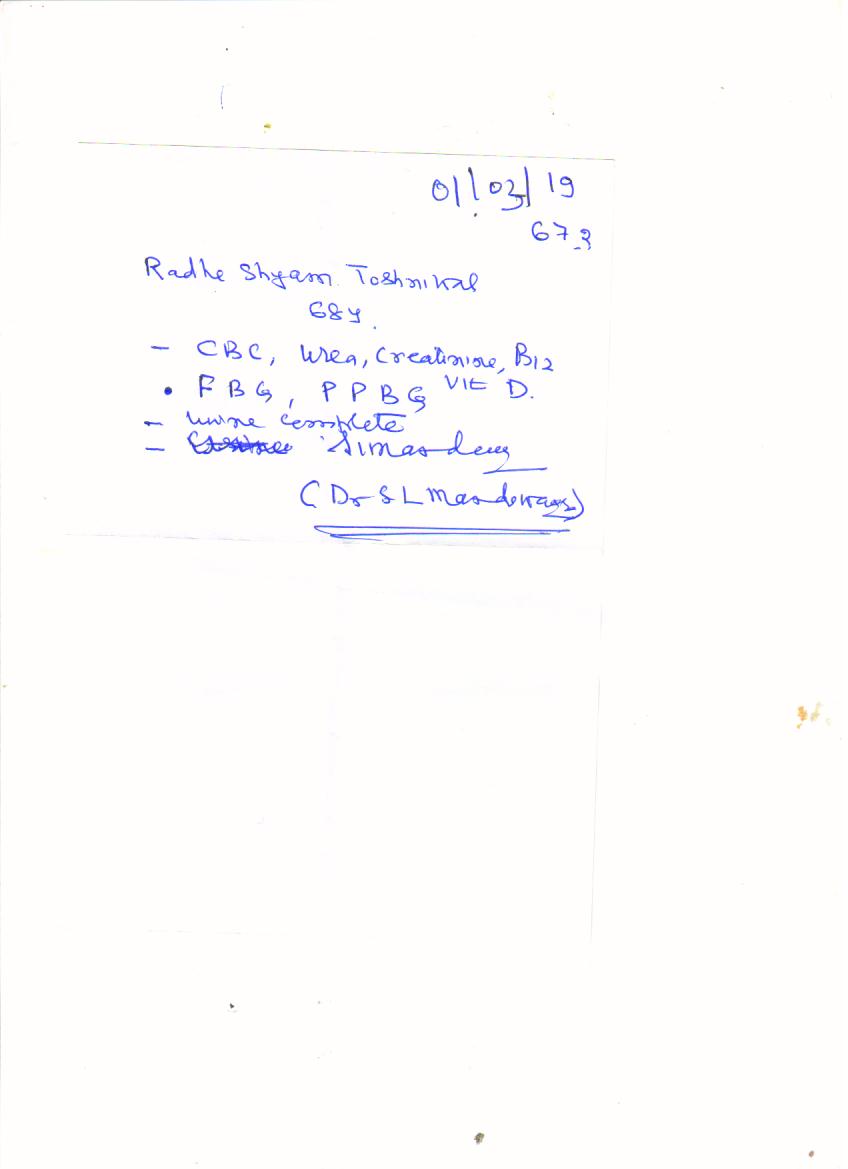 01/03/19
673
Radhe Shyam Toshniwal
68y.
- CBC, Urea, Creatinine, B12
• FBG, PPBG Vit D.
- urine complete
-
(Dr S L